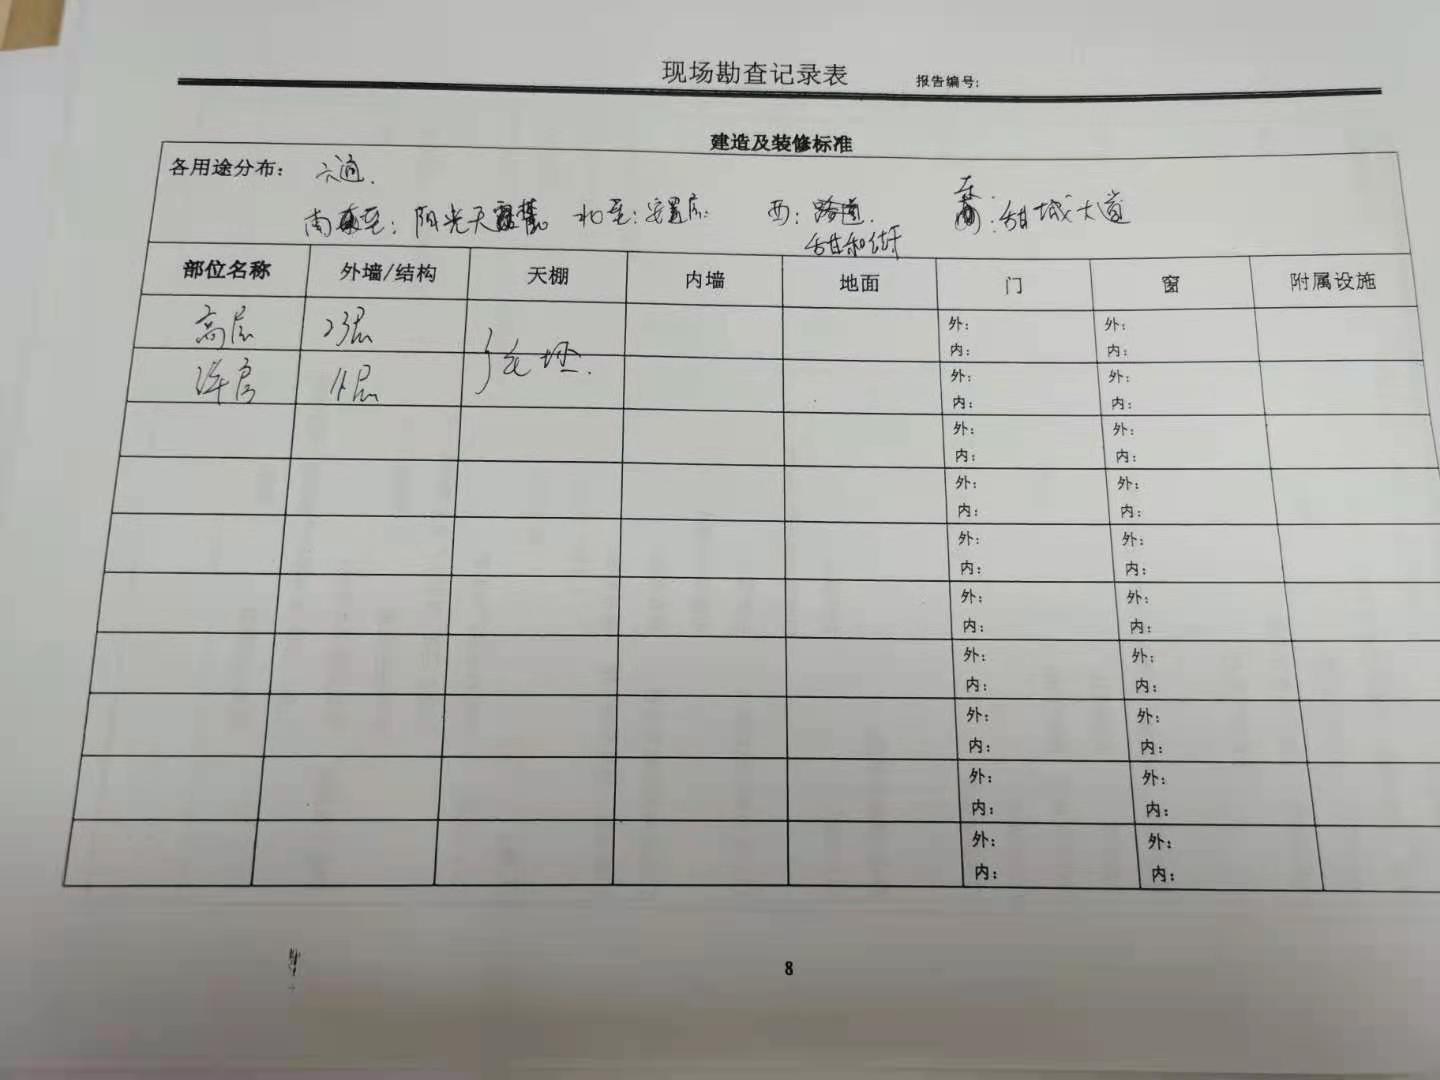 现场勘查记录表 报告编号:
建造及装修标准
各用途分布: 六通.
南至: 阳光天 北至: 安置房 西: 东: 甜城大道
甜和街
部位名称 外墙/结构 天棚 内墙 地面 门 窗 附属设施
高层 23层 毛坯. 外: 外:
内: 内:
洋房 11层 外: 外:
内: 内:
外: 外:
内: 内:
外: 外:
内: 内:
外: 外:
内: 内:
外: 外:
内: 内:
外: 外:
内: 内:
外: 外:
内: 内:
外: 外:
内: 内:
外: 外:
内: 内:
8